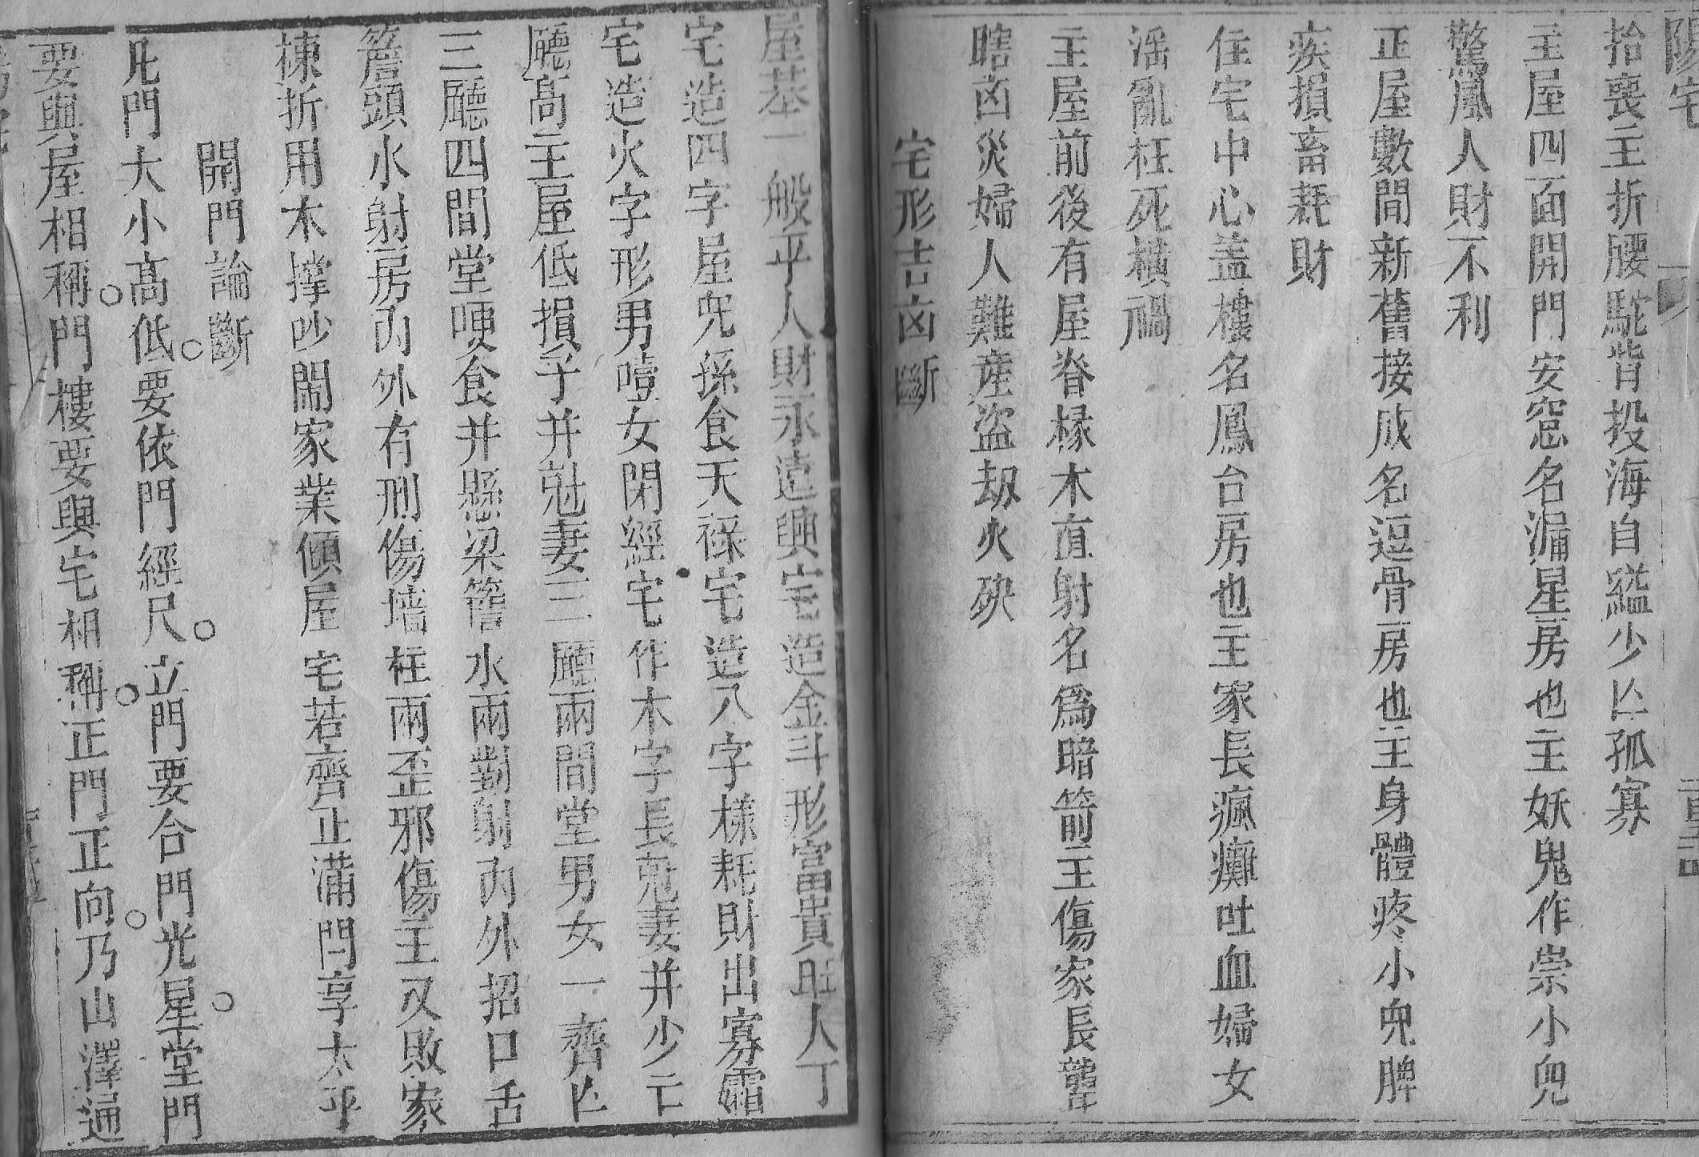 陽宅
拾喪主折腰駝背投海自縊少亾孤寡
主屋四面開門安窓名漏星房也主妖鬼作祟小兒
驚風人財不利
正屋數間新舊接成名逗骨房也主身體疼小兒脾
疾損畜耗財
住宅中心盖樓名鳳台房也主家長瘋癱吐血婦女
滛亂枉死橫禍
主屋前後有屋脊椽木直射名爲暗箭主傷家長聾
瞎凶災婦人難產盜刼火
宅形吉凶斷
屋基一般平人財永遠興宅造金斗形富貴旺人丁
宅造四字屋兒孫食天祿宅造八字樣耗財出寡霜
宅造火字形男噎女閉經宅作木字長尅妻并少亡
廳高主屋低損子并尅妻三廳兩間堂男女一齊亾
三廳四間堂哽食并懸梁簷水兩對射內外招口舌
簷頭水射房內外有刑傷墻柱兩歪邪傷主又敗家
棟折用木撑吵鬧家業傾屋宅若齊正滿門享太平
開門論斷
凡門大小高低要依門經尺立門要合門光星堂門
要與屋相稱門樓要與宅相稱正門正向乃山澤通